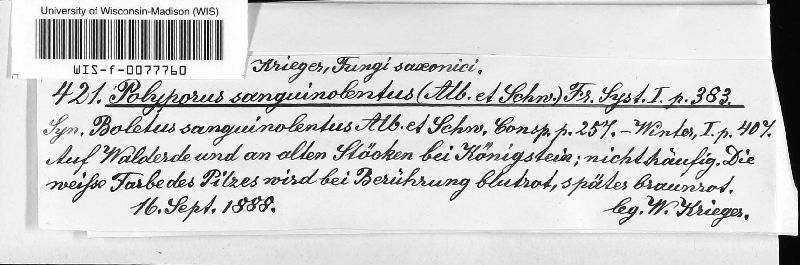 University of Wisconsin-Madison (WIS)
WIS-f-0077760
Krieger, Fungi saxonici.
421. Polyporus sanguinolentus (Alb. et Schw.) Fr. Syst. I. p. 383.
Syn. Boletus sanguinolentus Alb. et Schw. Consp. p. 257. - Winter, I. p. 407.
Auf Walderde und an alten Stöcken bei Königstein; nicht häufig. Die
weiße Farbe des Pilzes wird bei Berührung blutrot, später braunrot.
16. Sept. 1888. leg. W. Krieger.